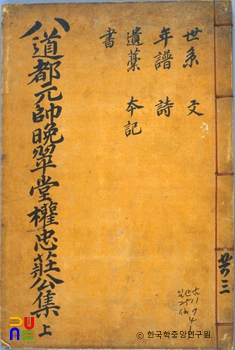 世系 文
年譜 詩
遺藁 本記
書
八道都元帥晩翠堂權忠莊公集 上
共三
© 한국학중앙연구원